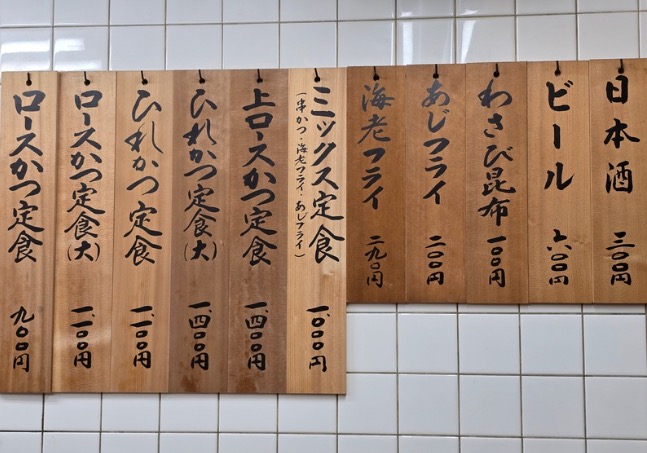 日本酒 三〇〇円
ビール 六〇〇円
わさび昆布 一〇〇円
あじフライ 二〇〇円
海老フライ 二九〇円
ミックス定食 一、〇〇〇円
(串かつ・海老フライ・あじフライ)
上ロースかつ定食 一、四〇〇円
ひれかつ定食(大) 一、四〇〇円
ひれかつ定食 一、一〇〇円
ロースかつ定食(大) 一、一〇〇円
ロースかつ定食 九〇〇円